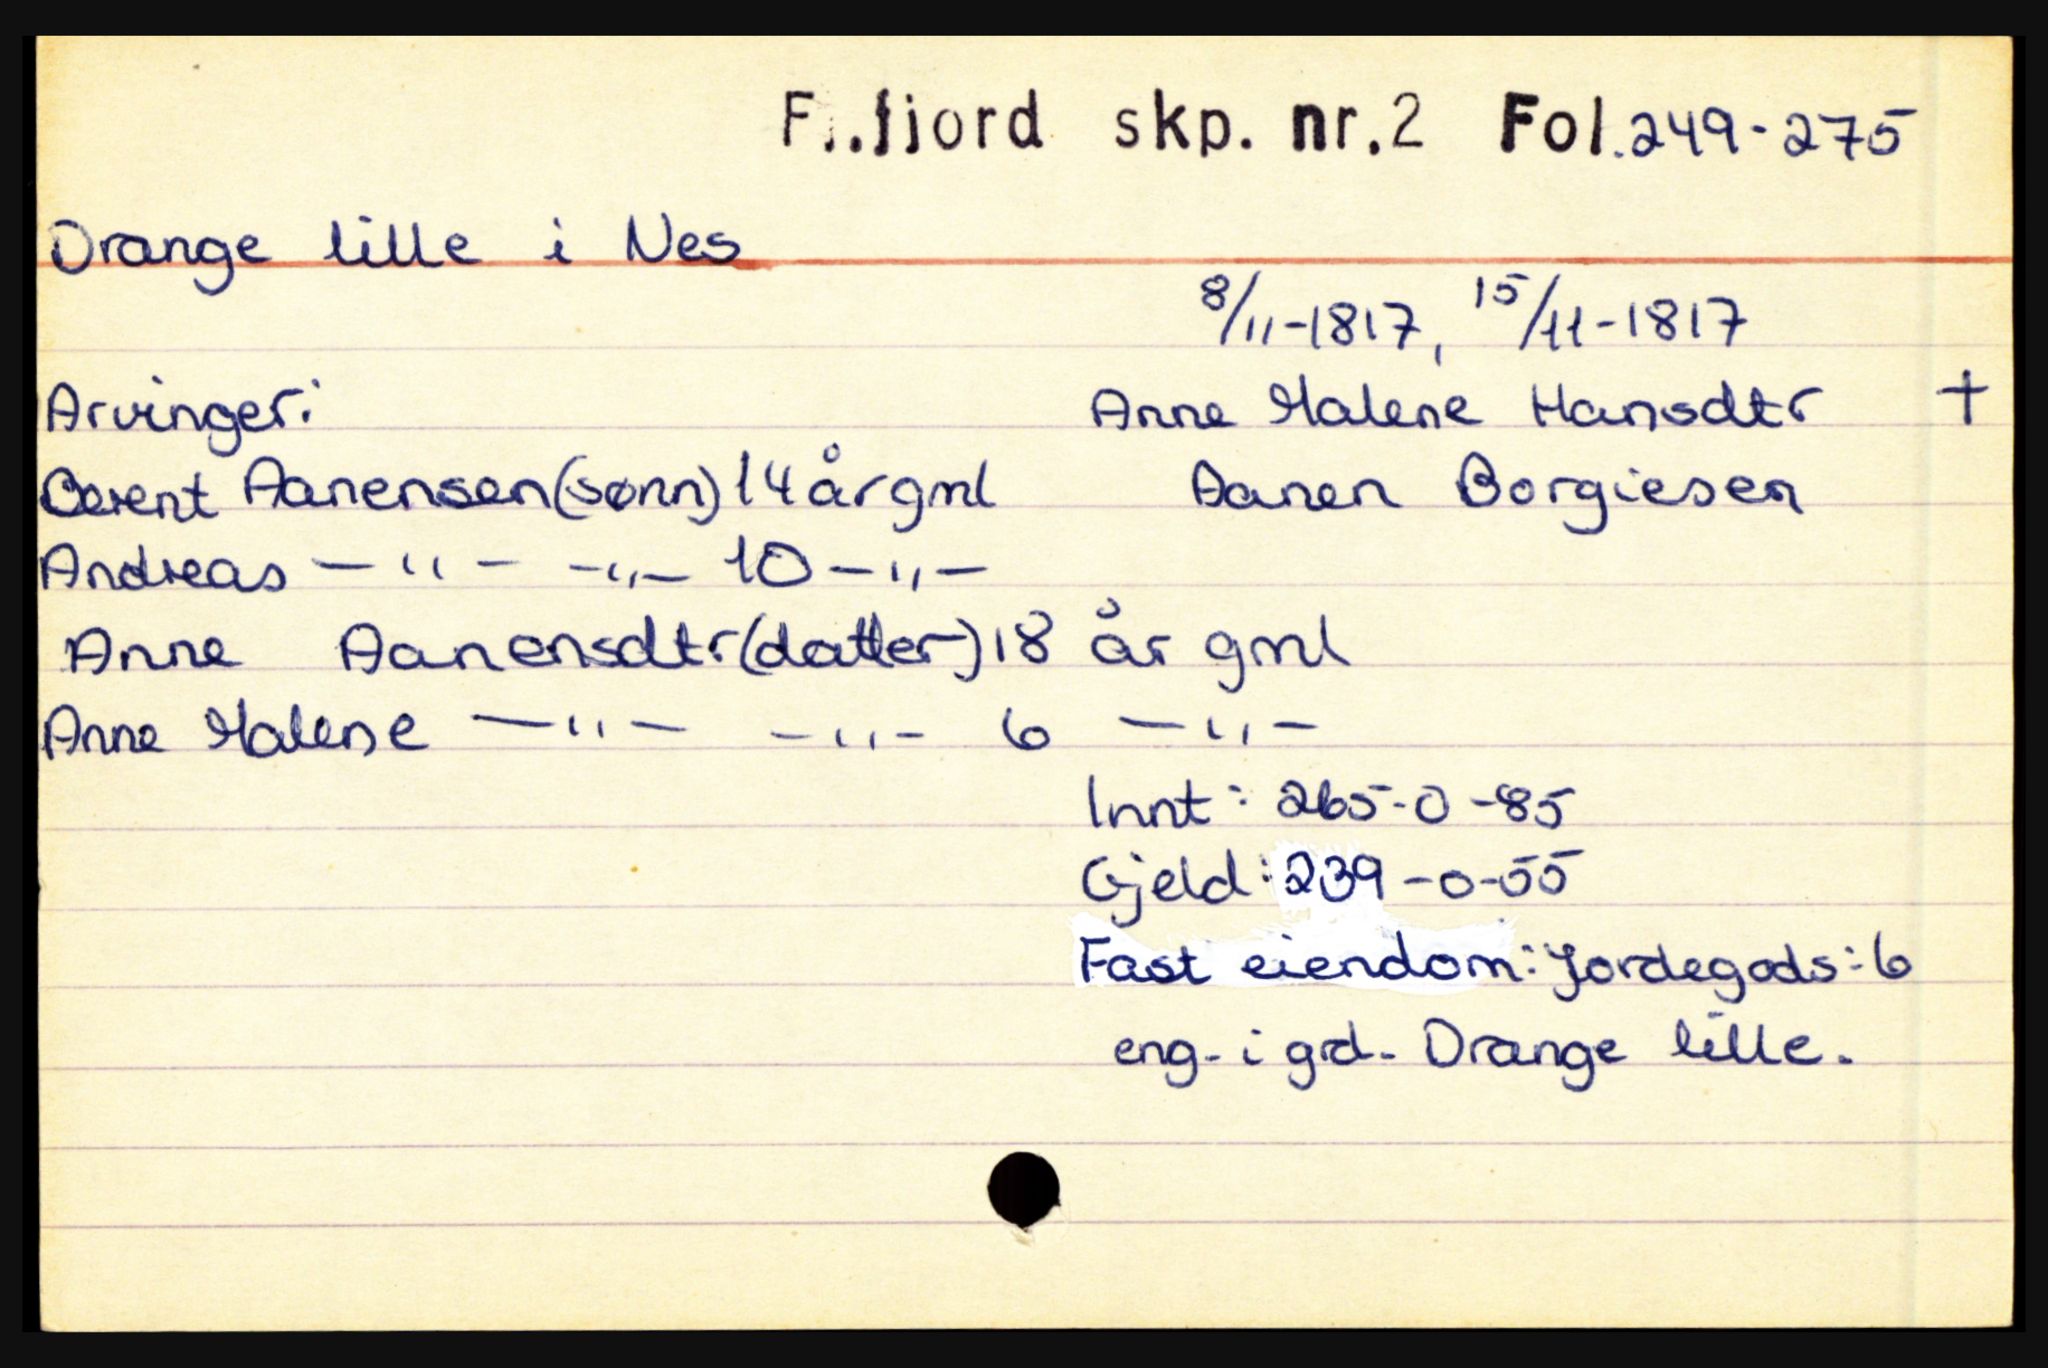 Fl.fjord skp. nr.2 Fol.249-275
Drange lille i Nes
8/11-1817, 15/11-1817
Arvinger: Anne Malene Hansdtr †
Berent Aanensen(sønn)14år gml Aanen Borgiesen
Andreas —"— —"— 10 —"—
Anne Aanensdtr(datter)18 år gml
Anne Malene —"— —"— 6 —"—
Innt: 265-0-85
Gjeld: 239-0-55
Fast eiendom: Jordegods: 6
eng- i grd- Drange lille.